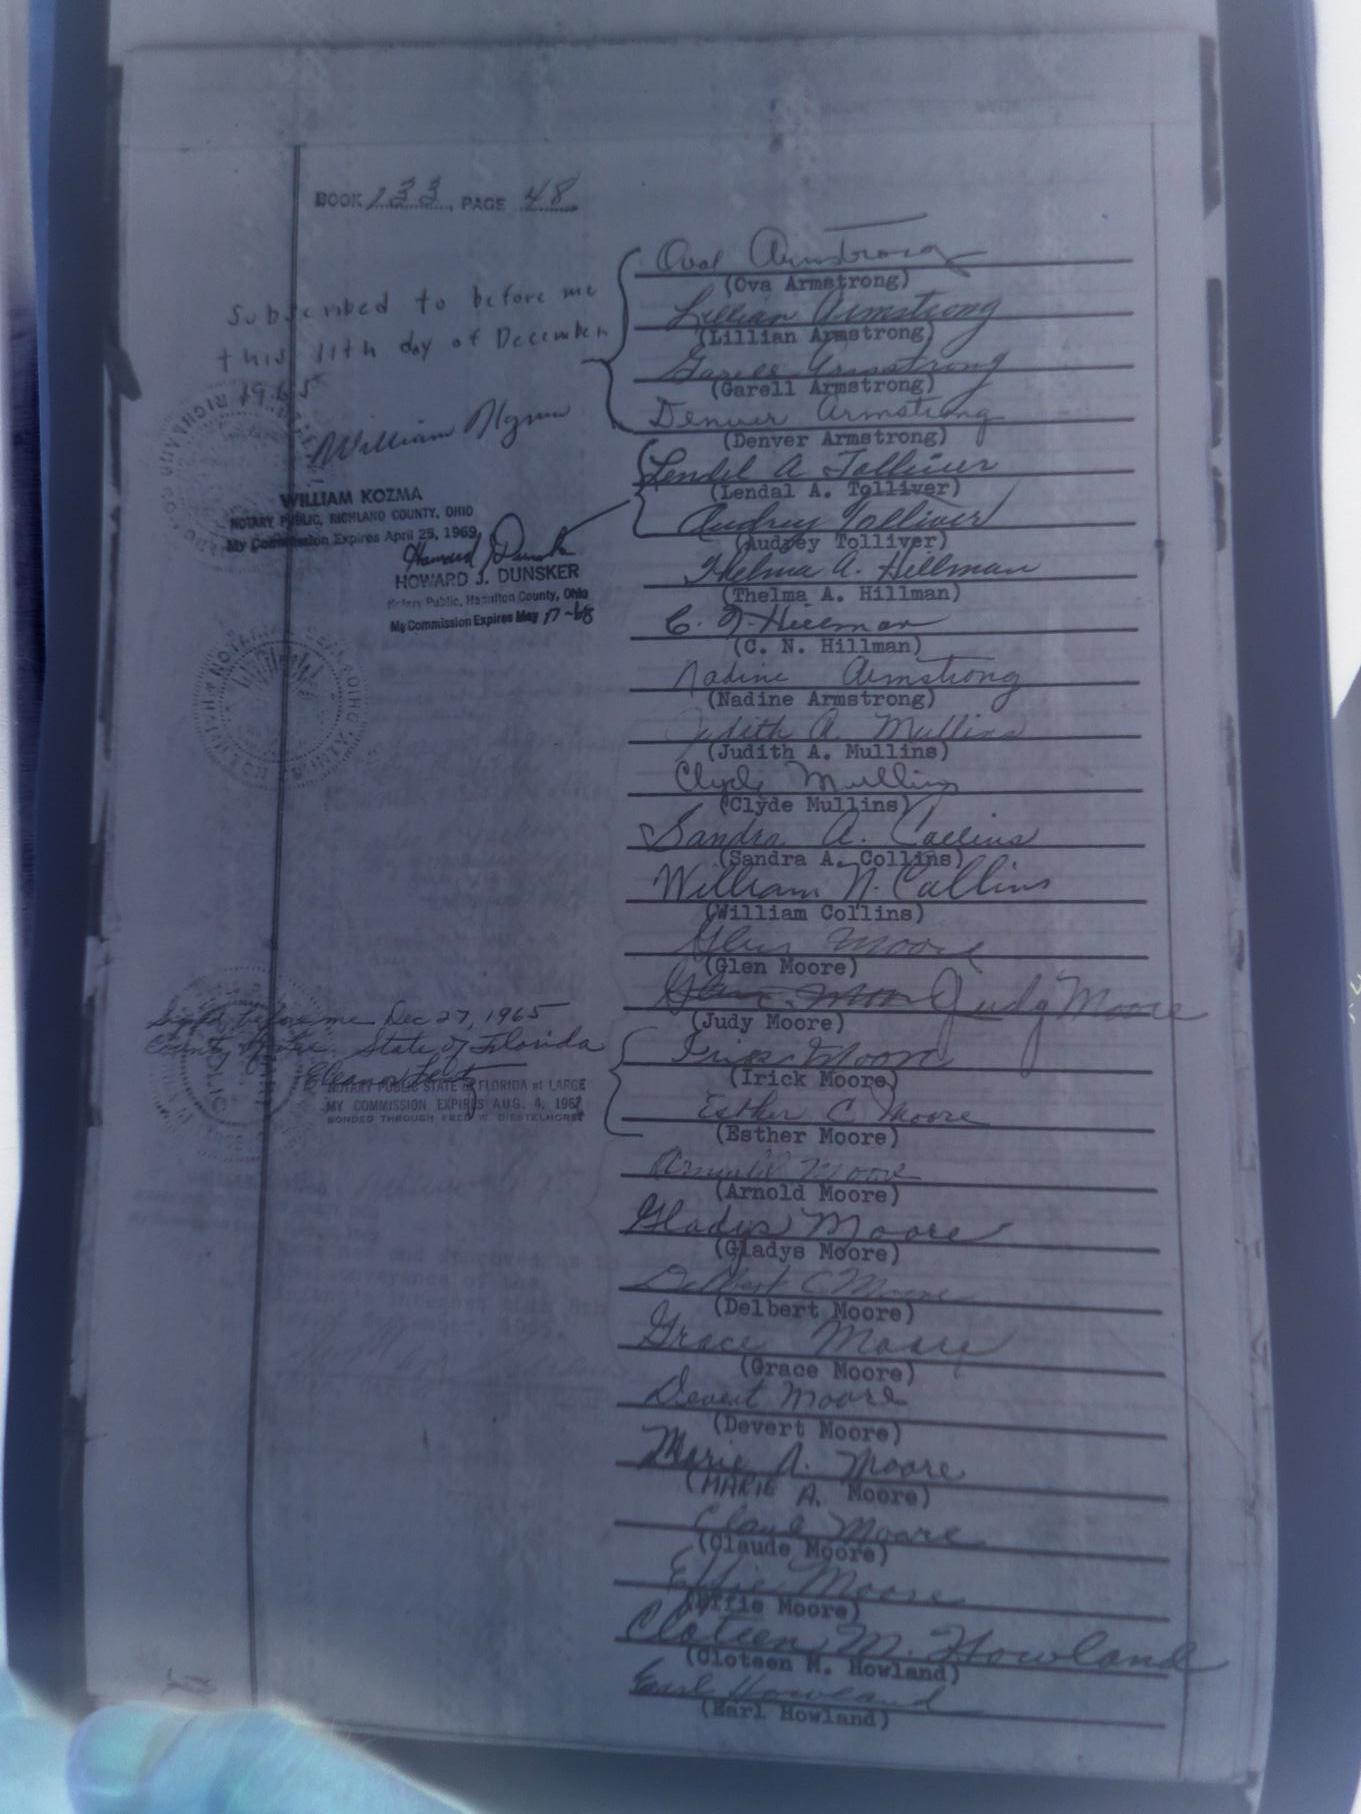 BOOK 133, PAGE 48
Subscribed to before me
this 11th day of December
1965
William
WILLIAM KOZMA
NOTARY PUBLIC, RICHLAND COUNTY, OHIO
My Commission Expires April 25, 1969
Howard J Dunsker
HOWARD J. DUNSKER
Notary Public, Hamilton County, Ohio
My Commission Expires May 17-68
Oval Armstrong
(Ova Armstrong)
Lillian Armstrong
(Lillian Armstrong)
Garell Armstrong
(Garell Armstrong)
Denver Armstrong
(Denver Armstrong)
Lendel A Tolliver
(Lendal A. Tolliver)
Audrey Tolliver
(Audrey Tolliver)
Thelma A. Hillman
(Thelma A. Hillman)
C. N. Hillman
(C. N. Hillman)
Nadine Armstrong
(Nadine Armstrong)
Judith A. Mullins
(Judith A. Mullins)
Clyde Mullins
(Clyde Mullins)
Sandra A. Collins
(Sandra A. Collins)
William N. Collins
(William Collins)
Glen Moore
(Glen Moore)
Judy Moore
(Judy Moore)
before me Dec 27, 1965
County of State of Florida
NOTARY PUBLIC STATE of FLORIDA at LARGE
MY COMMISSION EXPIRES AUG. 4, 1967
BONDED THROUGH FRED W. DIESTELHORST
Irick Moore
(Irick Moore)
Esther C Moore
(Esther Moore)
Arnold Moore
(Arnold Moore)
Gladys Moore
(Gladys Moore)
Delbert C Moore
(Delbert Moore)
Grace Moore
(Grace Moore)
Devert Moore
(Devert Moore)
Marie A. Moore
(MARIE A. Moore)
Claude Moore
(Claude Moore)
Effie Moore
(Effie Moore)
Cloteen M. Howland
(Cloteen M. Howland)
Earl Howland
(Earl Howland)